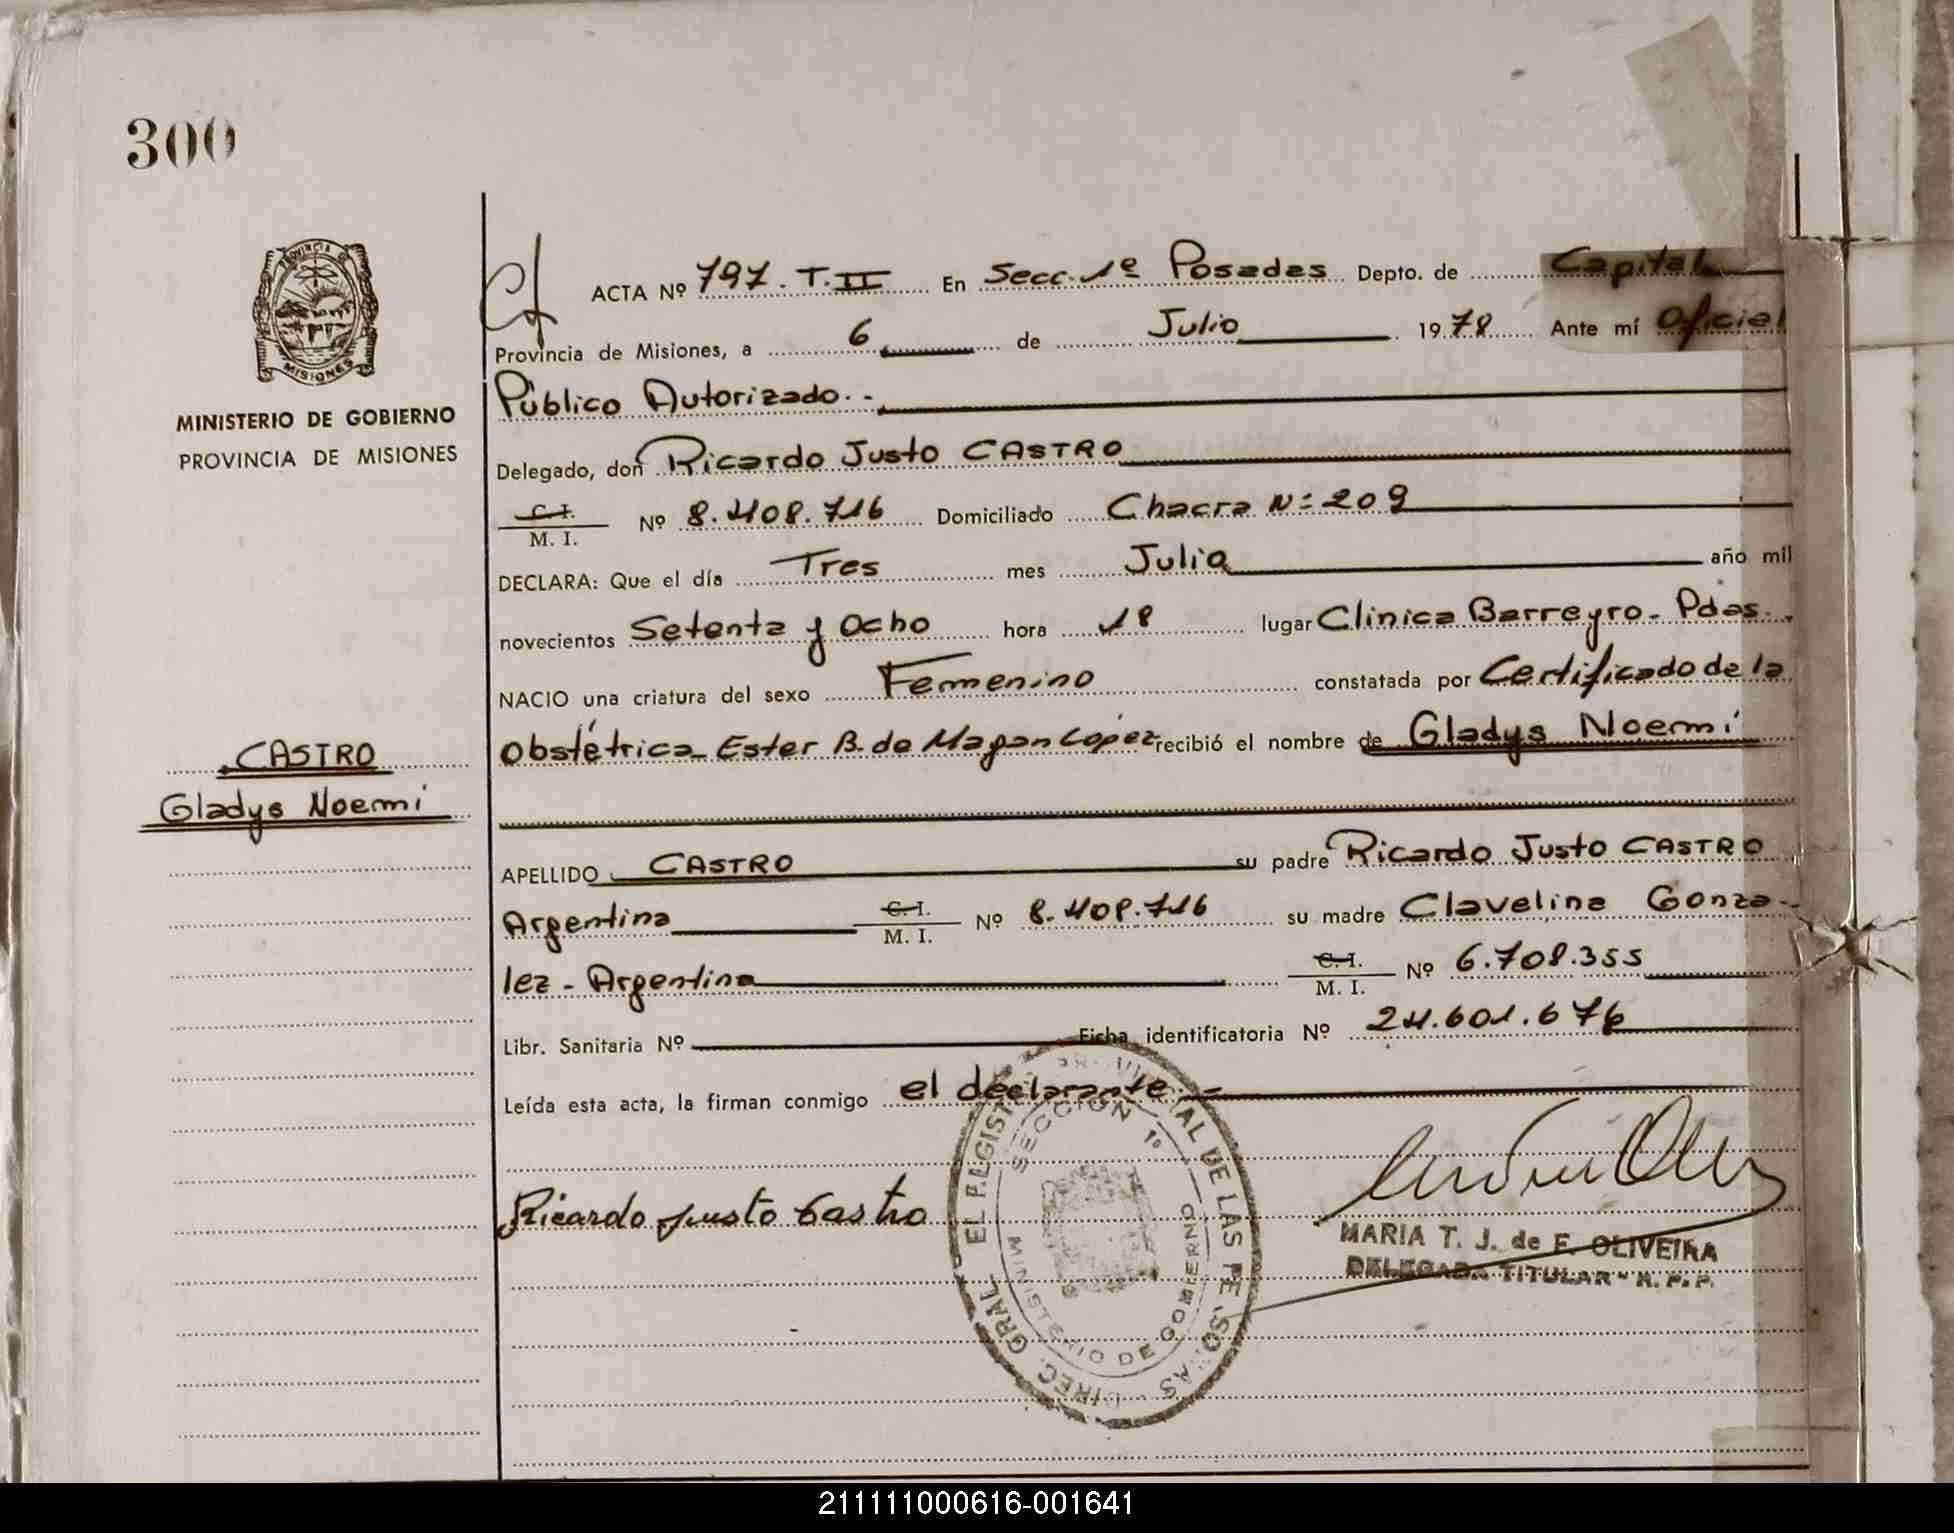 300
PROVINCIA DE
MISIONES
MINISTERIO DE GOBIERNO
PROVINCIA DE MISIONES
CASTRO
Gladys Noemí
ACTA Nº 797. T. II En Secc. 1º Posadas Depto. de Capital
Provincia de Misiones, a 6 de Julio 1978 Ante mí Oficial
Público Autorizado.-
Delegado, don Ricardo Justo CASTRO
C. I.
M. I. Nº 8.408.716 Domiciliado Chacra Nº 209
DECLARA: Que el día Tres mes Julio año mil
novecientos Setenta y Ocho hora 18 lugar Clinica Barreyro - Pdas.
NACIO una criatura del sexo Femenino constatada por Certificado de la
Obstétrica Ester B. de Magan López recibió el nombre de Gladys Noemí
APELLIDO CASTRO su padre Ricardo Justo CASTRO
Argentina C. I. M. I. Nº 8.408.716 su madre Clavelina Gonza-
lez - Argentina C. I. M. I. Nº 6.708.355
Libr. Sanitaria Nº Ficha identificatoria Nº 24.601.676
Leída esta acta, la firman conmigo el declarante.-
Ricardo Justo Castro
SECCION 1º
MINISTERIO DE GOBIERNO
MARIA T. J. de F. OLIVEIRA
DELEGADA TITULAR - R. P. P.
211111000616-001641